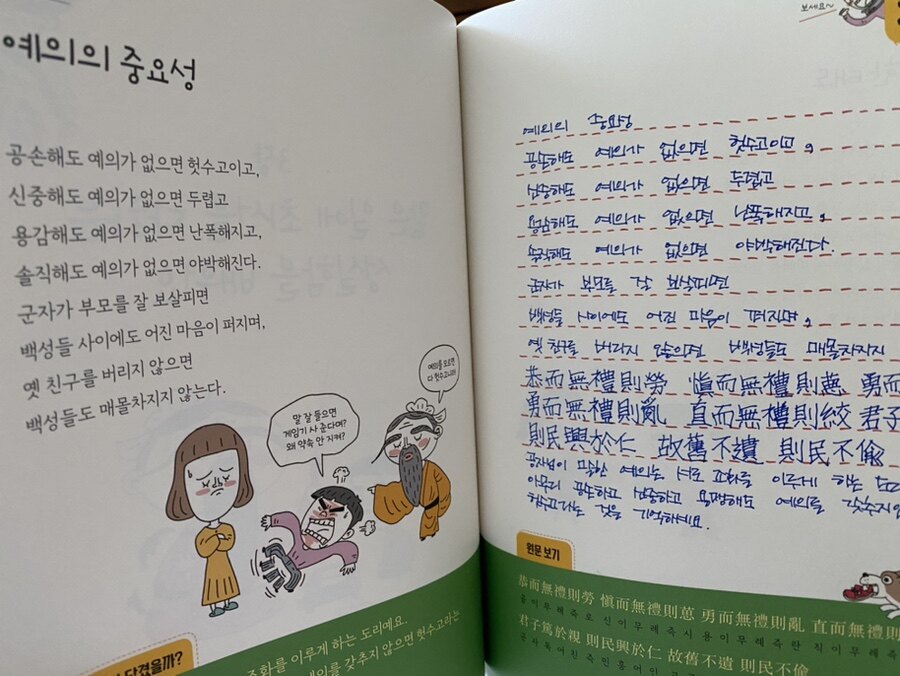 예의의 중요성
공손해도 예의가 없으면 헛수고이고,
신중해도 예의가 없으면 두렵고
용감해도 예의가 없으면 난폭해지고,
솔직해도 예의가 없으면 야박해진다.
군자가 부모를 잘 보살피면
백성들 사이에도 어진 마음이 퍼지며,
옛 친구를 버리지 않으면
백성들도 매몰차지지 않는다.
말 잘 들으면
게임기 사 준다며?
왜 약속 안 지켜?
예의를 모르면
다 헛수고니라
담겼을까?
조화를 이루게 하는 도리예요.
예의를 갖추지 않으면 헛수고라는
보세요~
예의의 중요성
공손해도 예의가 없으면 헛수고이고,
신중해도 예의가 없으면 두렵고
용감해도 예의가 없으면 난폭해지고,
솔직해도 예의가 없으면 야박해진다.
군자가 부모를 잘 보살피면
백성들 사이에도 어진 마음이 퍼지며,
옛 친구를 버리지 않으면 백성들도 매몰차지지
恭而無禮則勞 愼而無禮則葸 勇而
勇而無禮則亂 直而無禮則絞 君子
則民興於仁 故舊不遺 則民不偷
공자님이 말한 예의는 서로 조화를 이루게 하는 도리
아무리 공손하고 신중하고 용맹해도 예의를 갖추지
헛수고라는 것을 기억하세요.
원문 보기
恭而無禮則勞 愼而無禮則葸 勇而無禮則亂 直而無禮則
공이무례즉로 신이무례즉시 용이무례즉란 직이무례즉
君子篤於親 則民興於仁 故舊不遺 則民不偷
군자독어친 즉민흥어인